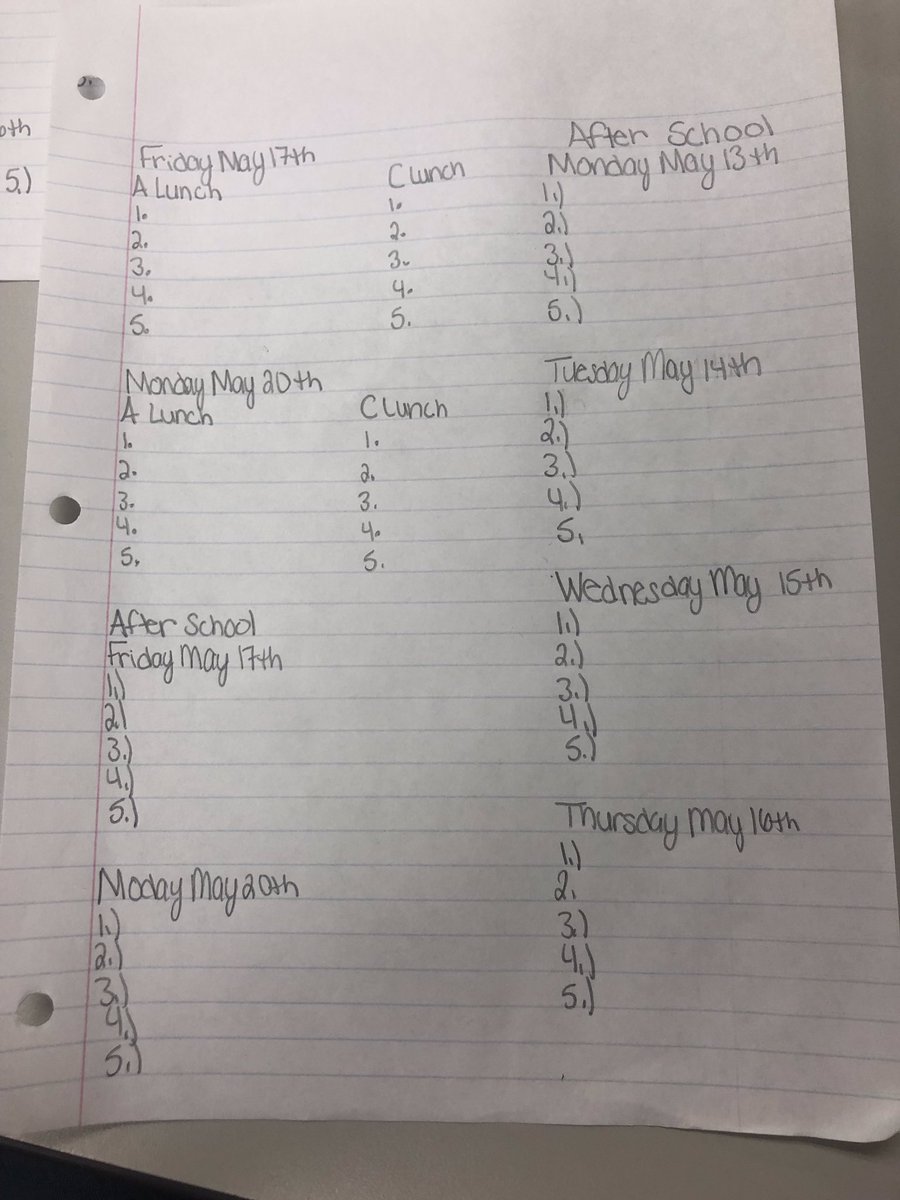 oth
5.)
Friday May 17th
A Lunch
1.
2.
3.
4.
5.
C Lunch
1.
2.
3.
4.
5.
Monday May 20th
A Lunch
1.
2.
3.
4.
5.
C Lunch
1.
2.
3.
4.
5.
After School
Friday May 17th
1.)
2.)
3.)
4.)
5.)
Moday May 20th
1.)
2.)
3.)
4.)
5.)
After School
Monday May 13th
1.)
2.)
3.)
4.)
5.)
Tuesday May 14th
1.)
2.)
3.)
4.)
5.
Wednesday May 15th
1.)
2.)
3.)
4.)
5.)
Thursday May 16th
1.)
2.
3.)
4.)
5.)